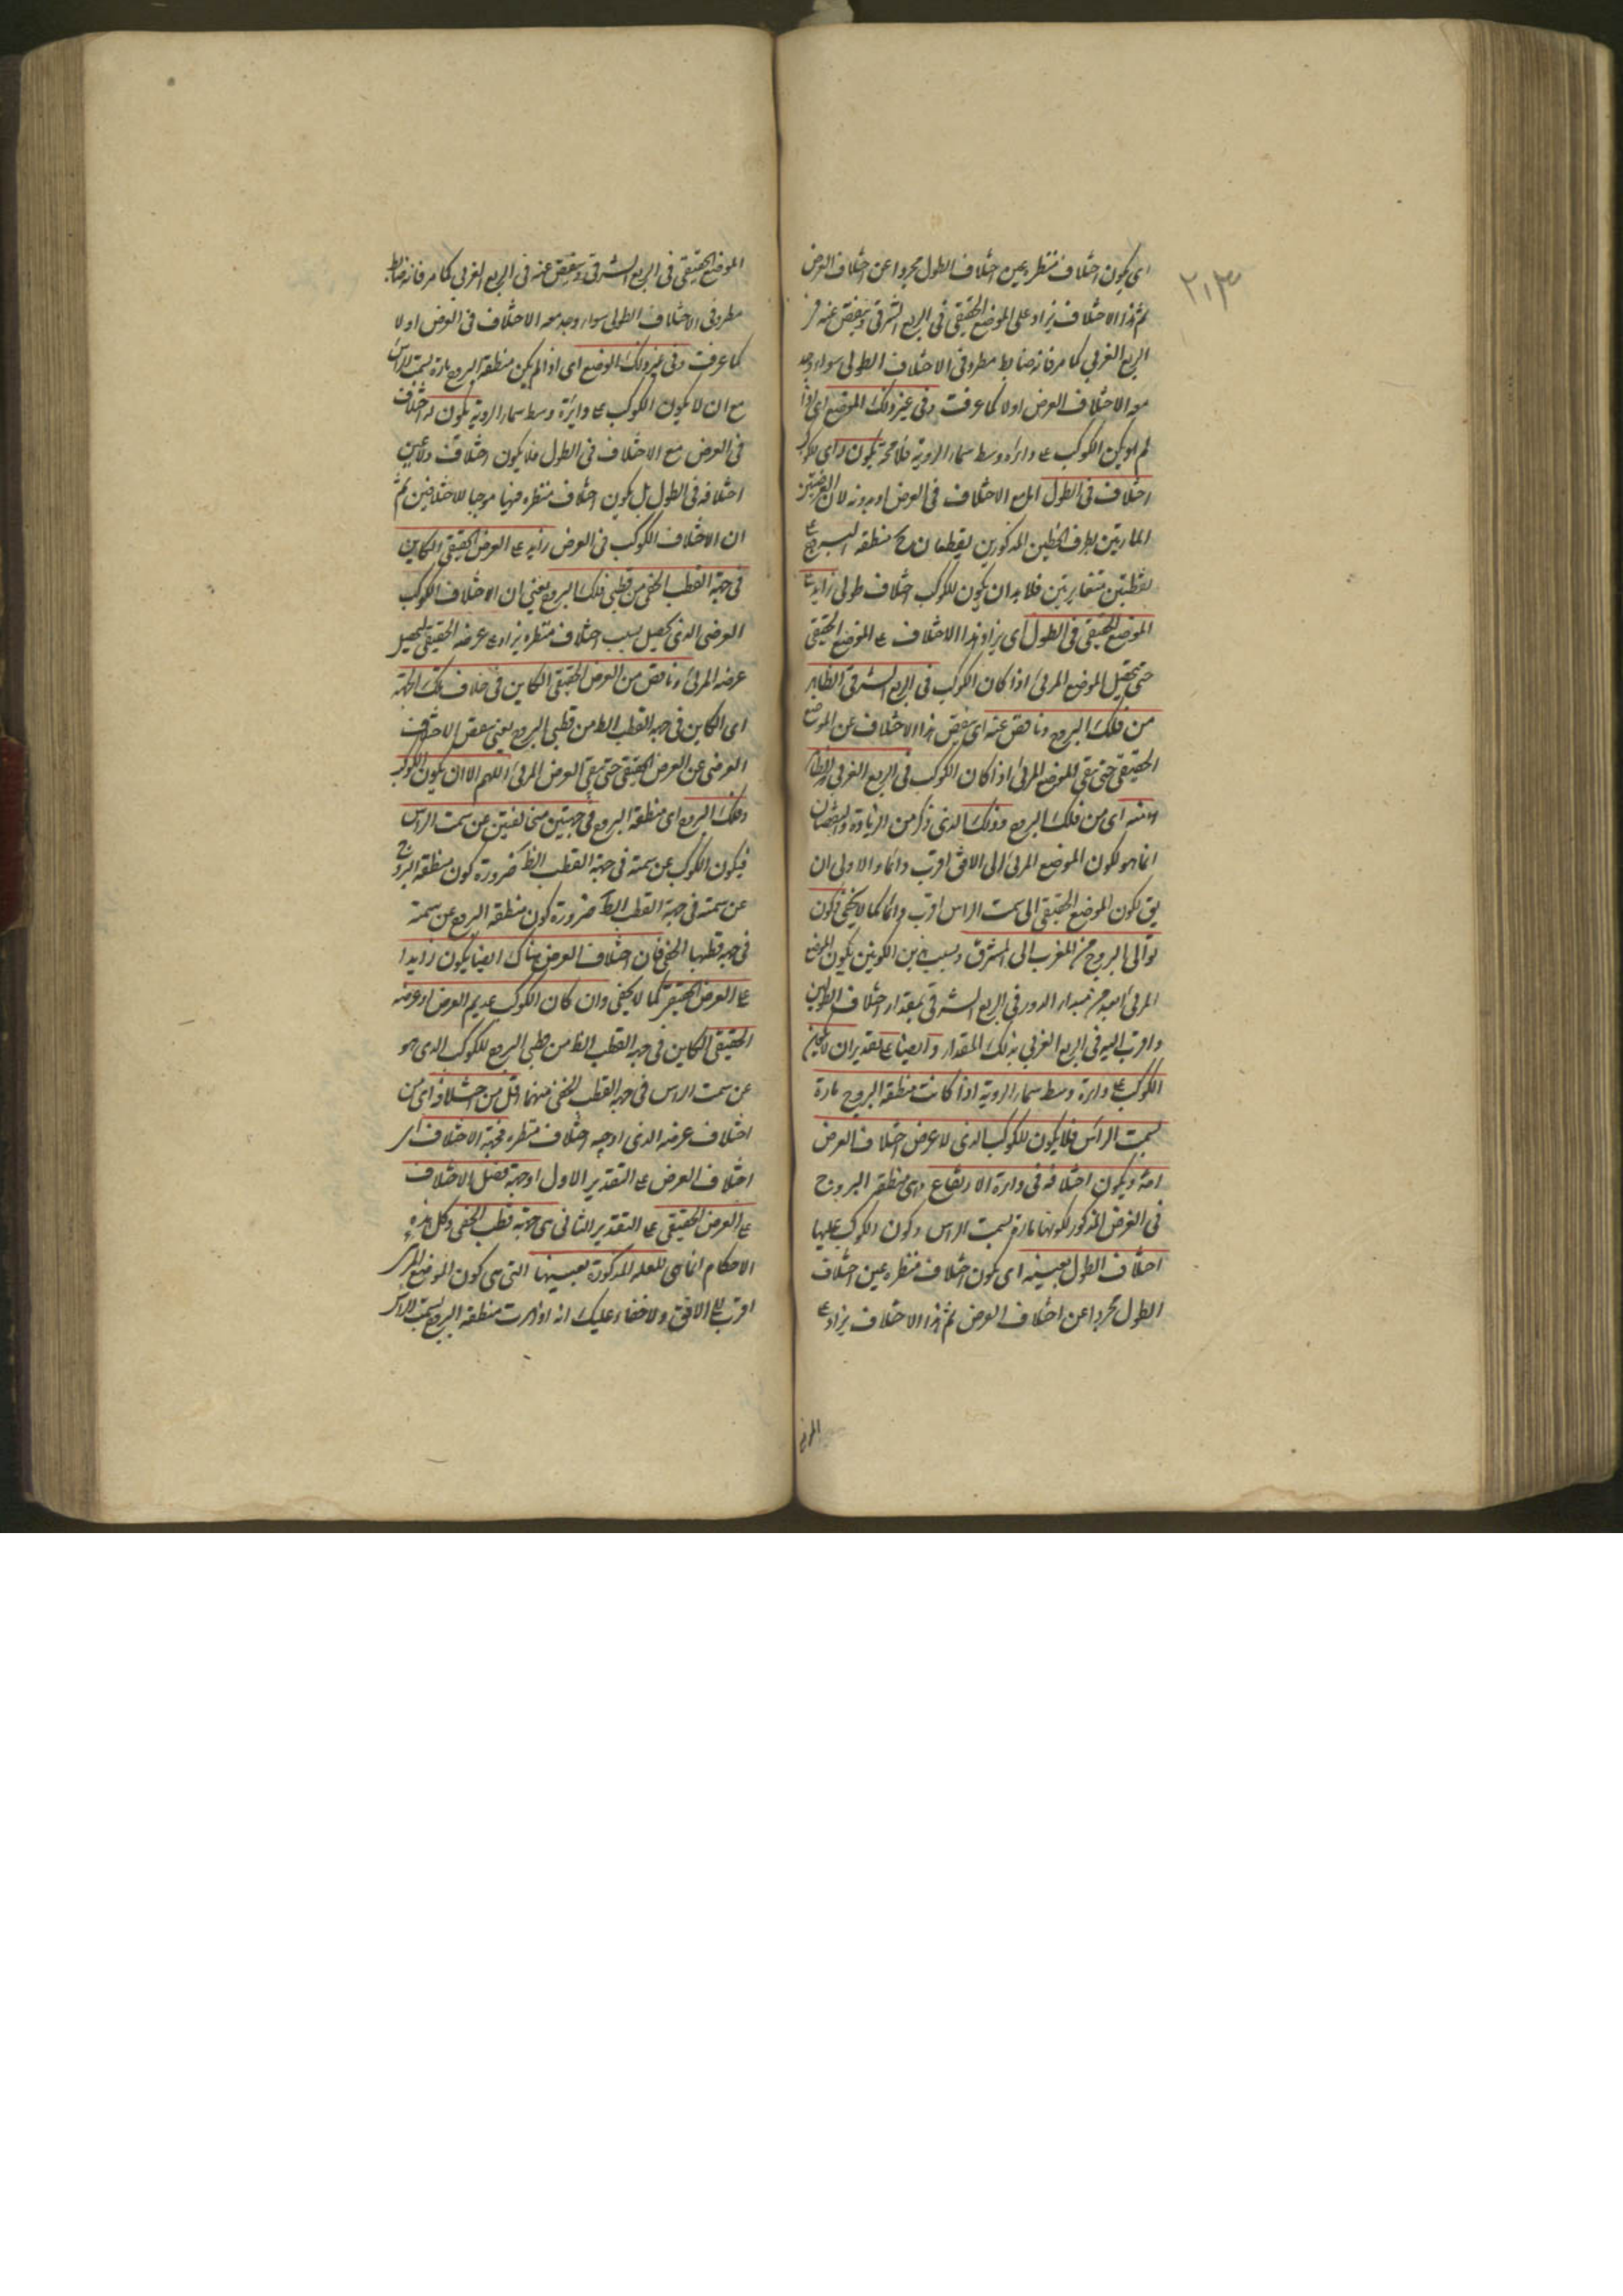 اى يكون اختلاف منظره عين اختلاف الطول مجردا عن اختلاف العرض
ثم هذا الاختلاف يزاد على الموضع الحقيقى فى الربع الشرقى وينقص عنه فى
الربع الغربى كما مر فانه ضابط مطرد فى الاختلاف الطولى سواء وجد
معه الاختلاف العرض اولا كما عرفت وفى غير ذلك الموضع اى اذا
لم يكن الكوكب ع دائرة وسط سماء الروية فلا محة يكون له اى للكوكب
اختلاف فى الطول اما مع الاختلاف فى العرض او بدونه لان العرضيتين
المارتين بطرف الخطين المذكورين يقطعان منطقة البروج ع
نقطتين متغايرتين فلا بد ان يكون للكوكب اختلاف طولى زايد ع
الموضع الحقيقى فى الطول اى يزاد هذا الاختلاف ع الموضع الحقيقى
حتى يحصل الموضع المرئى اذا كان الكوكب فى الربع الشرقى الظاهر
من فلك البروج وناقص عنه اى ينقص هذا الاختلاف عن الموضع
الحقيقى حتى بقى الموضع المرئى اذا كان الكوكب فى الربع الغربى الظاهر
منه اى من فلك البروج وذلك الذى ذكر من الزيادة والنقصان
انما هو لكون الموضع المرئى الى الافق اقرب دائما والاولى ان
يق لكون الموضع الحقيقى الى سمت الراس اقرب دائما كما لا يخفى وكون
توالى البروج من المغرب الى المشرق وبسبب هذين الكونين يكون الموضع
المرئى ابعد من مبداء الدور فى الربع الشرقى بمقدار اختلاف الطولين
واقرب اليه فى الربع الغربى بذلك المقدار وايضا ع تقدير ان لا يكون
الكوكب ع دائرة وسط سماء الروية اذا كانت منطقة البروج مارة
بسمت الراس فلا يكون للكوكب الذى لا عرض اختلاف العرض
ويكون اختلافه فى دائرة الارتفاع وهى منطقة البروج
فى الفرض المذكور لكونها مارة بسمت الراس وكون الكوكب عليها
اختلاف الطول بعينه اى يكون اختلاف منظره عين اختلاف
الطول مجردا عن اختلاف العرض ثم هذا الاختلاف يزاد ع
٢١٣
الموضع الحقيقى فى الربع الشرقى وينقص عنه فى الربع الغربى كما مر فانه ضابط
مطرد فى الاختلاف الطولى سواء وجد معه الاختلاف فى العرض اولا
كما عرفت وفى غير ذلك الموضع اى اذا لم يكن منطقة البروج مارة بسمت الراس
مع ان لا يكون الكوكب ع دائرة وسط سماء الروية يكون له اختلاف
فى العرض مع الاختلاف فى الطول فلا يكون اختلافه عين
اختلافه فى الطول بل يكون اختلاف منظره فيها موجبا للاختلافين ثم
ان الاختلاف الكوكب فى العرض زايد ع العرض الحقيقى الكاين
فى جهة القطب الخفى من قطبى فلك البروج يعنى ان الاختلاف الكوكب
العرضى الذى يحصل بسبب اختلاف منظره يزاد ع عرضه الحقيقى ليحصل
عرضه المرئى وناقص من العرض الحقيقى الكاين فى خلاف تلك الجهة
اى الكاين فى جهة القطب الظ من قطبى البروج يعنى ينقص الاختلاف
العرضى عن العرض الحقيقى حتى بقى العرض المرئى اللهم الا ان يكون الكوكب
وفلك البروج اى منطقة البروج فى جهتين مختلفتين عن سمت الراس
فيكون الكوكب عن سمته فى جهة القطب الظ ضرورة كون منطقة البروج
عن سمته فى جهة القطب الظ ضرورة كون منطقة البروج عن سمته
فى جهة قطبها الخفى فان اختلاف العرض هناك ايضا يكون زايدا
ع العرض الحقيقى كما لا يخفى وان كان الكوكب عديم العرض او عرضه
الحقيقى الكاين فى جهة القطب الظ من قطبى البروج للكوكب الذى هو
عن سمت الراس فى جهة القطب الخفى منهما اقل من اختلافه اى من
اختلاف عرضه الذى اوجبه اختلاف منظره فجهة الاختلاف اى
اختلاف العرض ع التقدير الاول او جهة فضل الاختلاف
ع العرض الحقيقى ع التقدير الثانى هى جهة قطب الخفى وكل هذه
الاحكام انما هى للعلة المذكورة بعينها التى هى كون الموضع المرئى
اقرب الى الافق ولا خفاء عليك انه اذا مرت منطقة البروج بسمت الراس